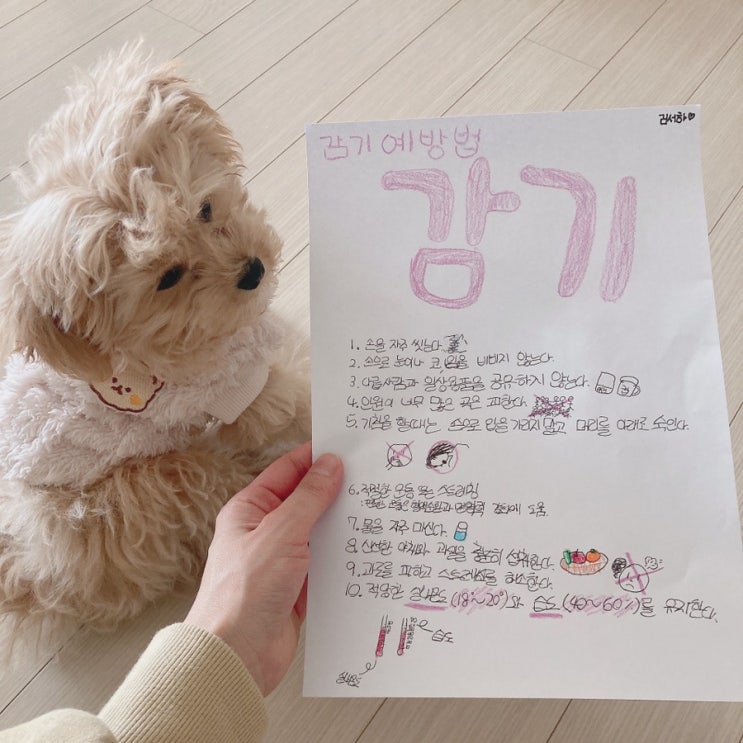 김서하♡
감기 예방법
감기
1. 손을 자주 씻는다.
2. 손으로 눈이나 코 입을 비비지 않는다.
3. 다른사람과 일상용품을 공유하지 않는다.
4. 인원이 너무 많은 곳은 피한다.
5. 기침을 할때는 손으로 입을 가리지 말고 머리를 아래로 숙인다.
6. 적절한 운동 또는 스트레칭
: 꾸준한 운동은 혈액순환과 면역력 강화에 도움.
7. 물을 자주 마신다.
8. 신선한 야채와 과일을 충분히 섭취한다.
9. 과로를 피하고 스트레스를 해소한다.
10. 적당한 실내온도(18°~20°)와 습도(40~60%)를 유지한다.
습도
실내온도